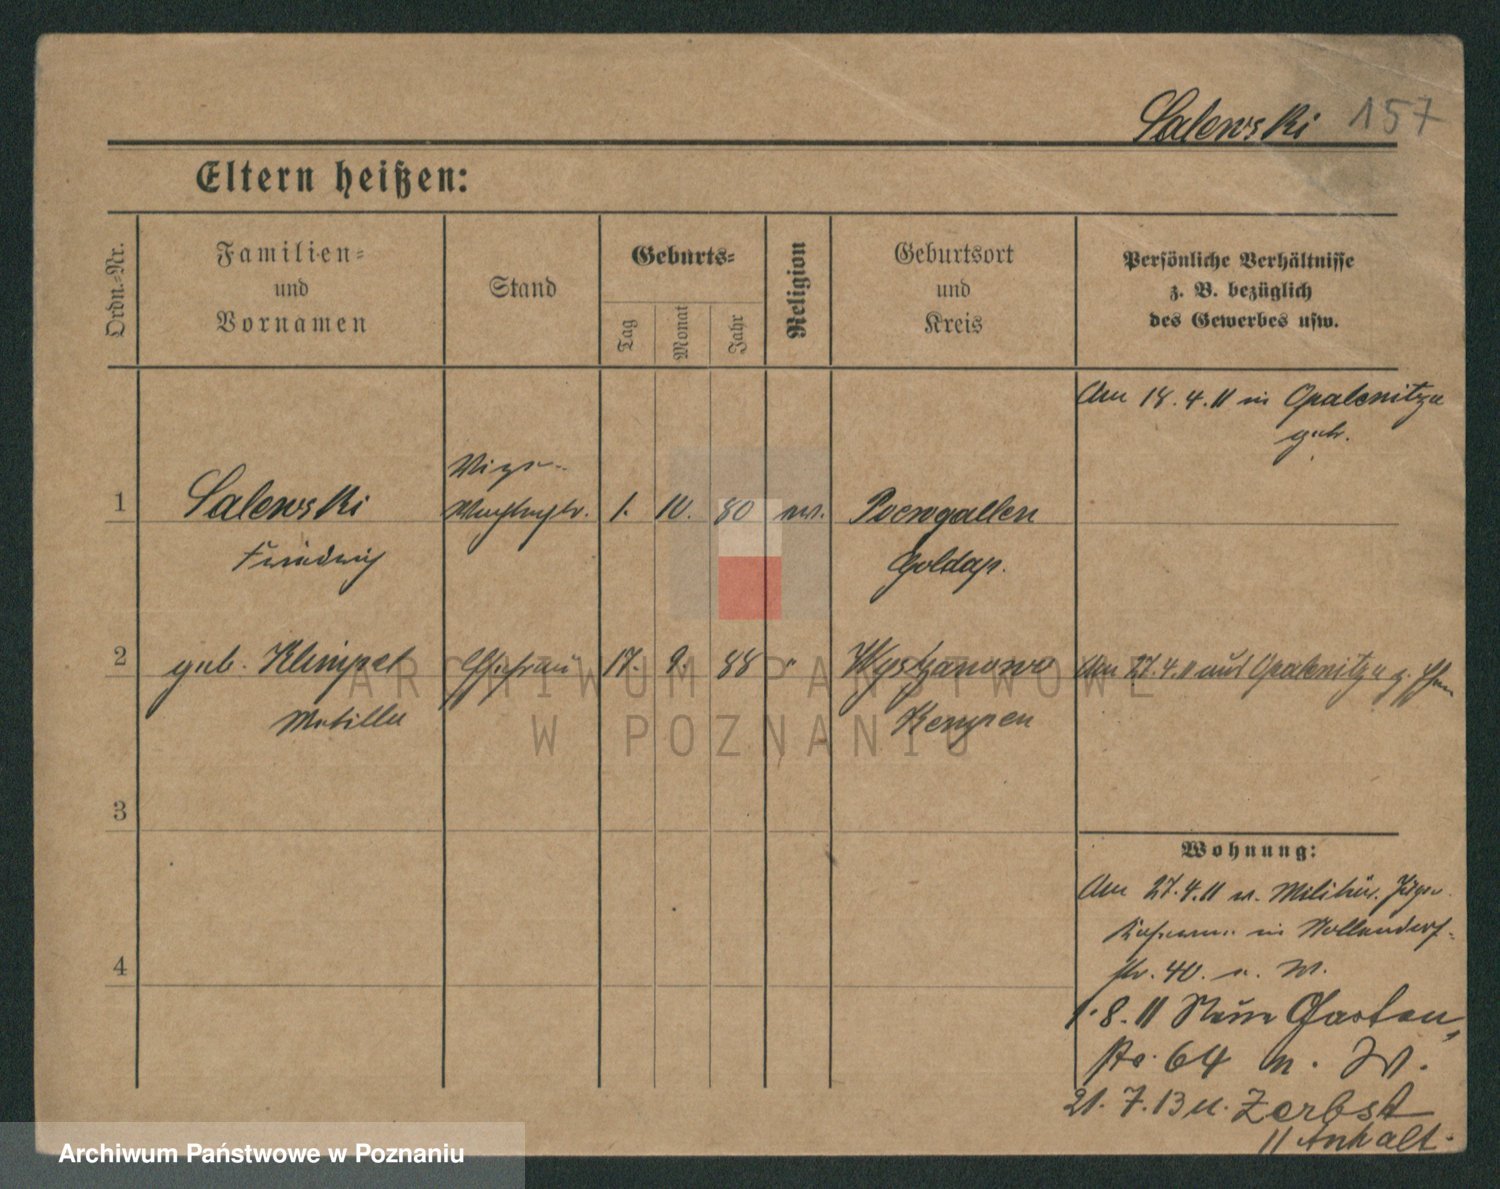 Salewski 157
Eltern heißen:
Ordn.=Nr.
Familien=
und
Vornamen
Stand
Geburts=
Tag
Monat
Jahr
Religion
Geburtsort
und
Kreis
Persönliche Verhältnisse
z. B. bezüglich
des Gewerbes usw.
Am 18.4.11 in Opalenitza
getr.
1 Salewski 1. 10. 80 ev. Goldap.
Friedrich
2 geb. Klimpel Ehefrau 17. 9. 88 " Wyszanowo Am 27.4.11 aus Opalenitza
Kempen
3
4
Wohnung:
Am 27.4.11 n. Militär. Jäger
Kaserne in Nollendorf-
str. 40. n. W.
1.8.11 Neue Garten
str. 64 n. W.
21.7.13 n. Zerbst
// Anhalt.
ARCHIWUM PAŃSTWOWE
W POZNANIU
Archiwum Państwowe w Poznaniu